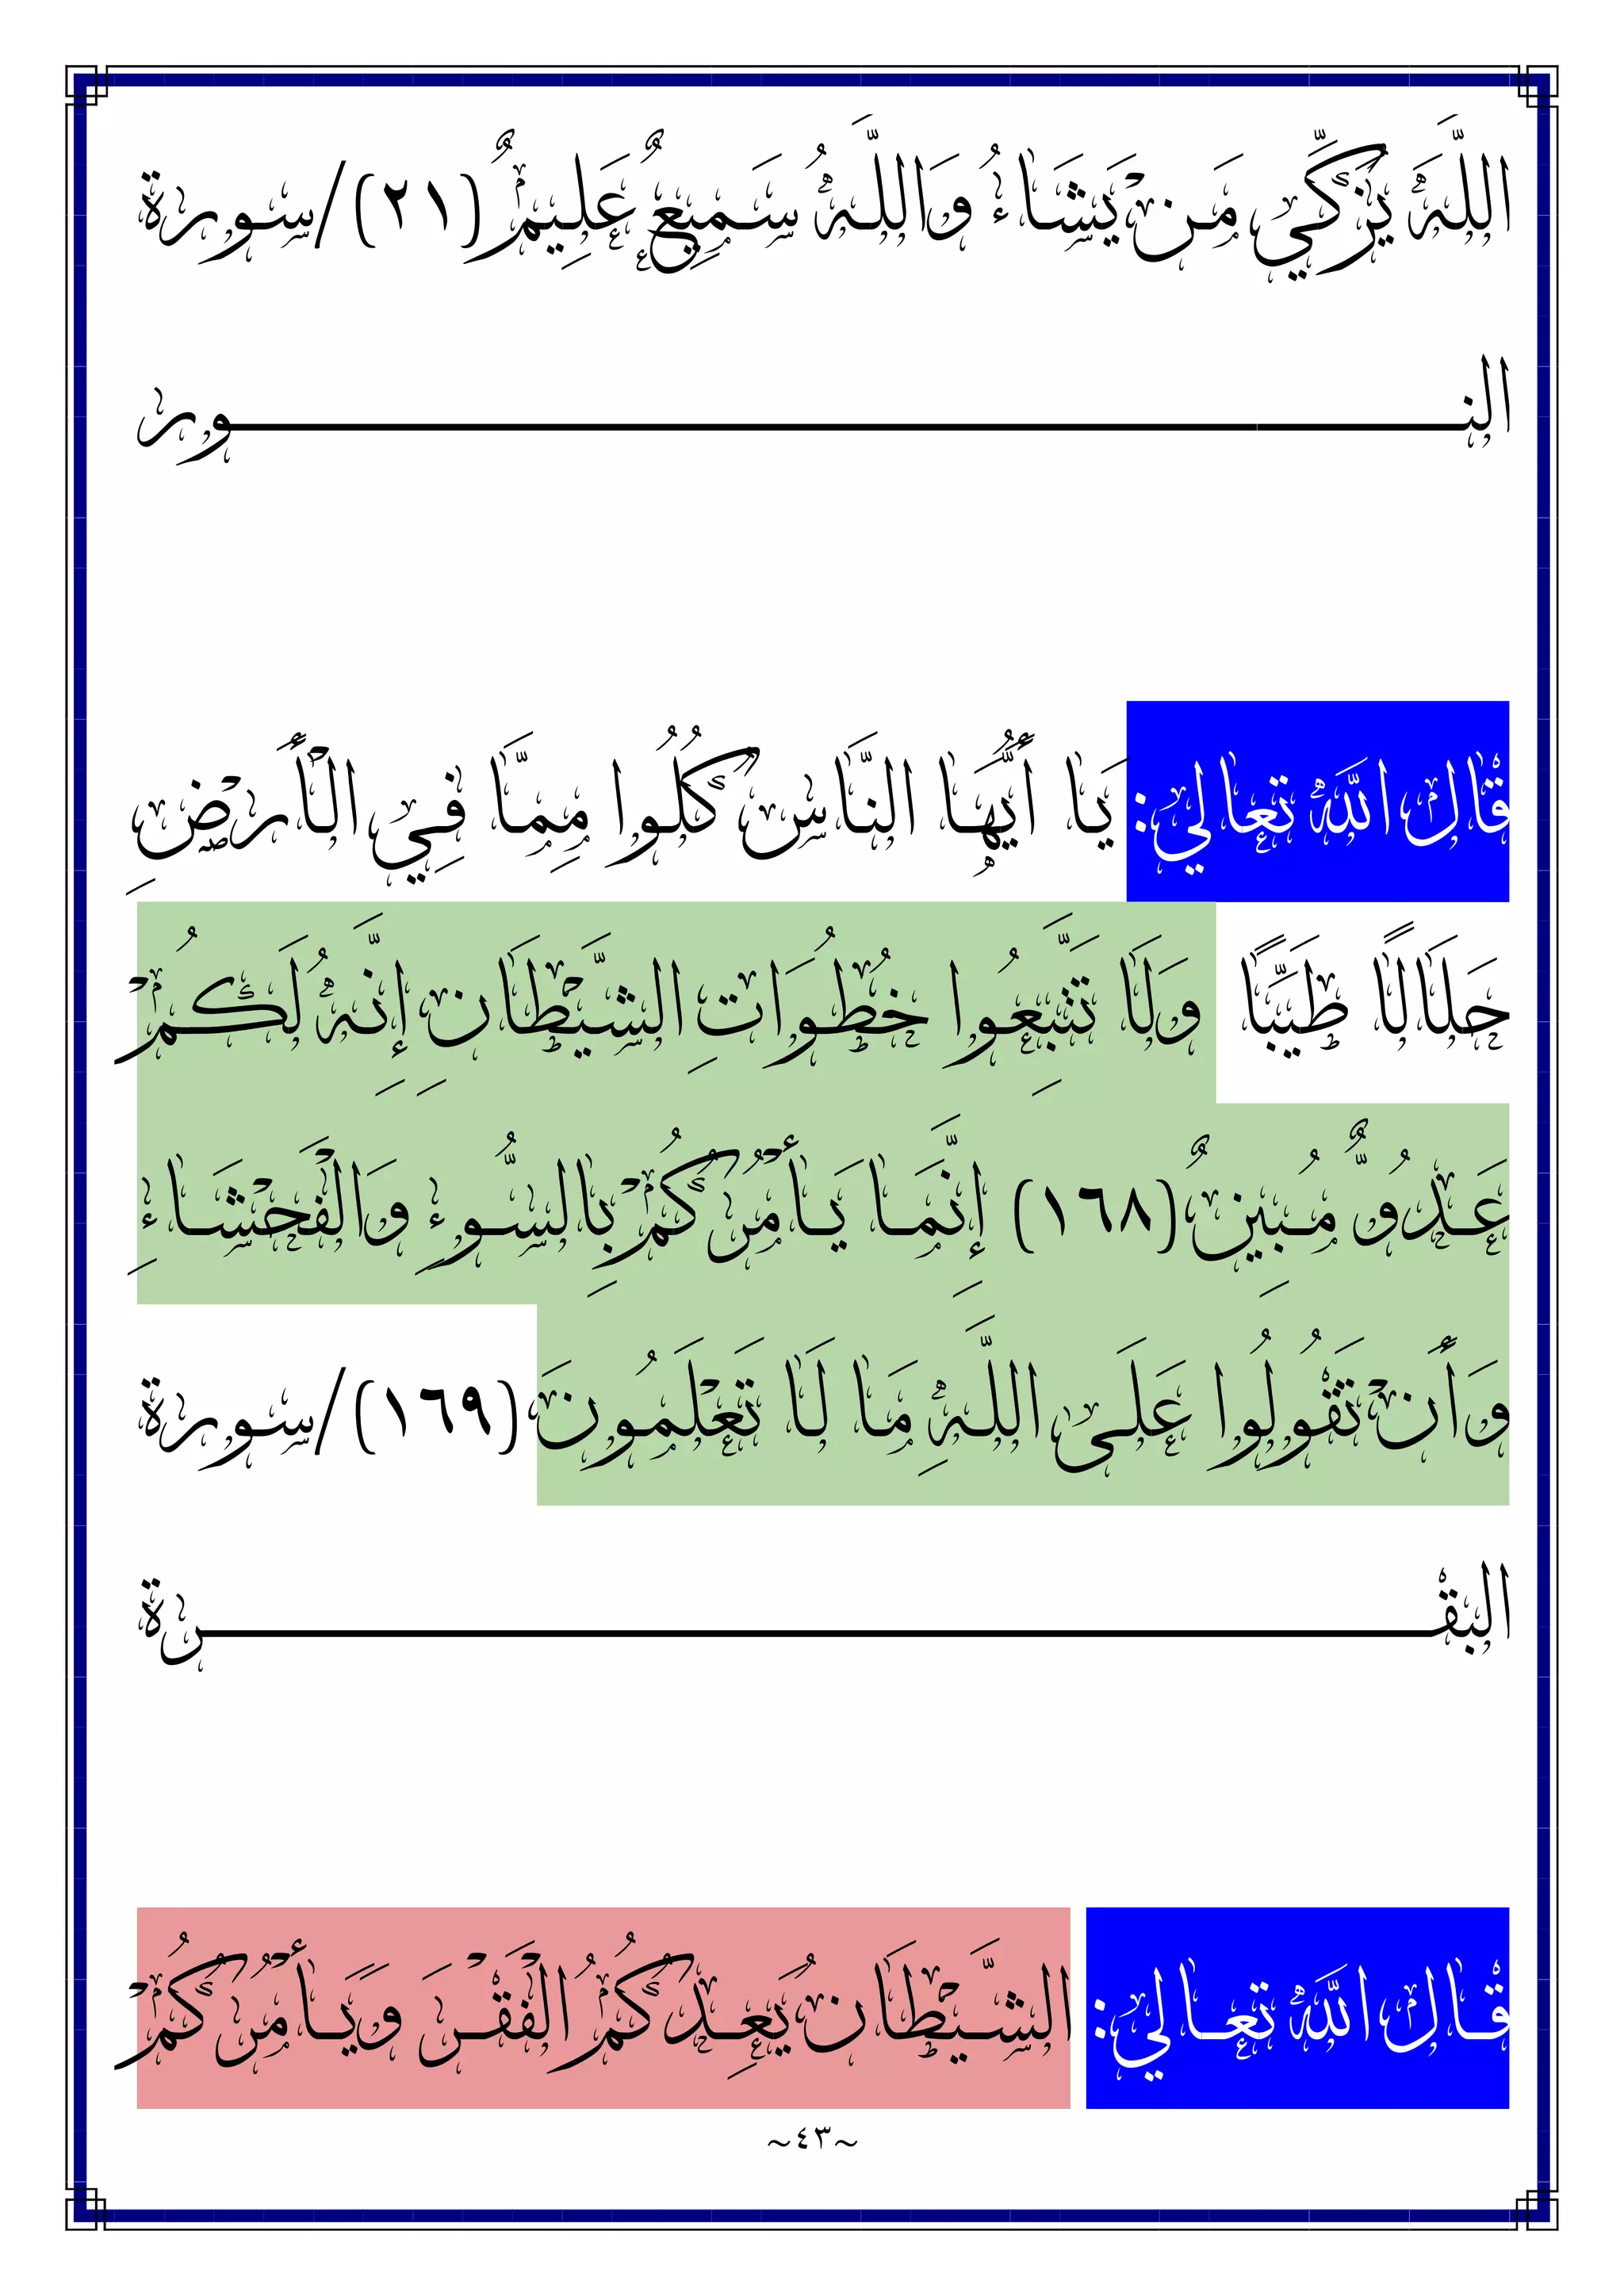 اللَّهَ يُزَكِّي مَنْ يَشَاءُ وَاللَّهُ سَمِيعٌ عَلِيمٌ (٢١)/سورة
النور
قال الله تعالي: يَا أَيُّهَا النَّاسُ كُلُوا مِمَّا فِي الْأَرْضِ
حَلَالًا طَيِّبًا وَلَا تَتَّبِعُوا خُطُوَاتِ الشَّيْطَانِ إِنَّهُ لَكُمْ
عَدُوٌّ مُبِينٌ (١٦٨) إِنَّمَا يَأْمُرُكُمْ بِالسُّوءِ وَالْفَحْشَاءِ
وَأَنْ تَقُولُوا عَلَى اللَّهِ مَا لَا تَعْلَمُونَ (١٦٩)/سورة
البقرة
قال الله تعالي: الشَّيْطَانُ يَعِدُكُمُ الْفَقْرَ وَيَأْمُرُكُمْ
~٤٣~